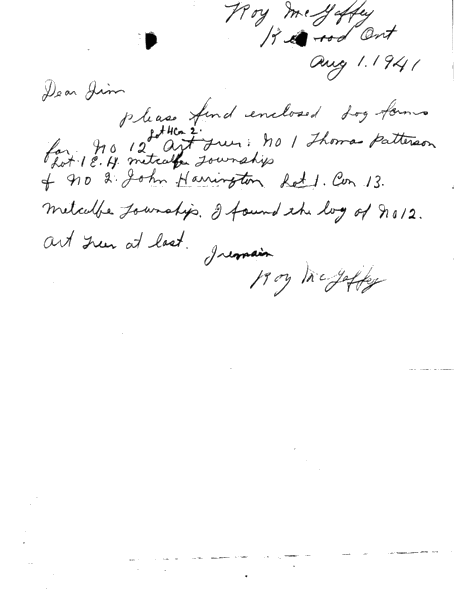 Roy McGaffey
K rood Ont
Aug 1. 1941
Dear Jim
please find enclosed Log forms
Lot 4 Con 2.
for No 12 Art Freer: No 1 Thomas Patterson
Lot 1 E. H. Metcalfe Township
& No 2. John Harrington Lot 1. Con 13.
Metcalfe Township. I found the log of No 12.
Art Freer at last.
I remain
Roy McGaffey